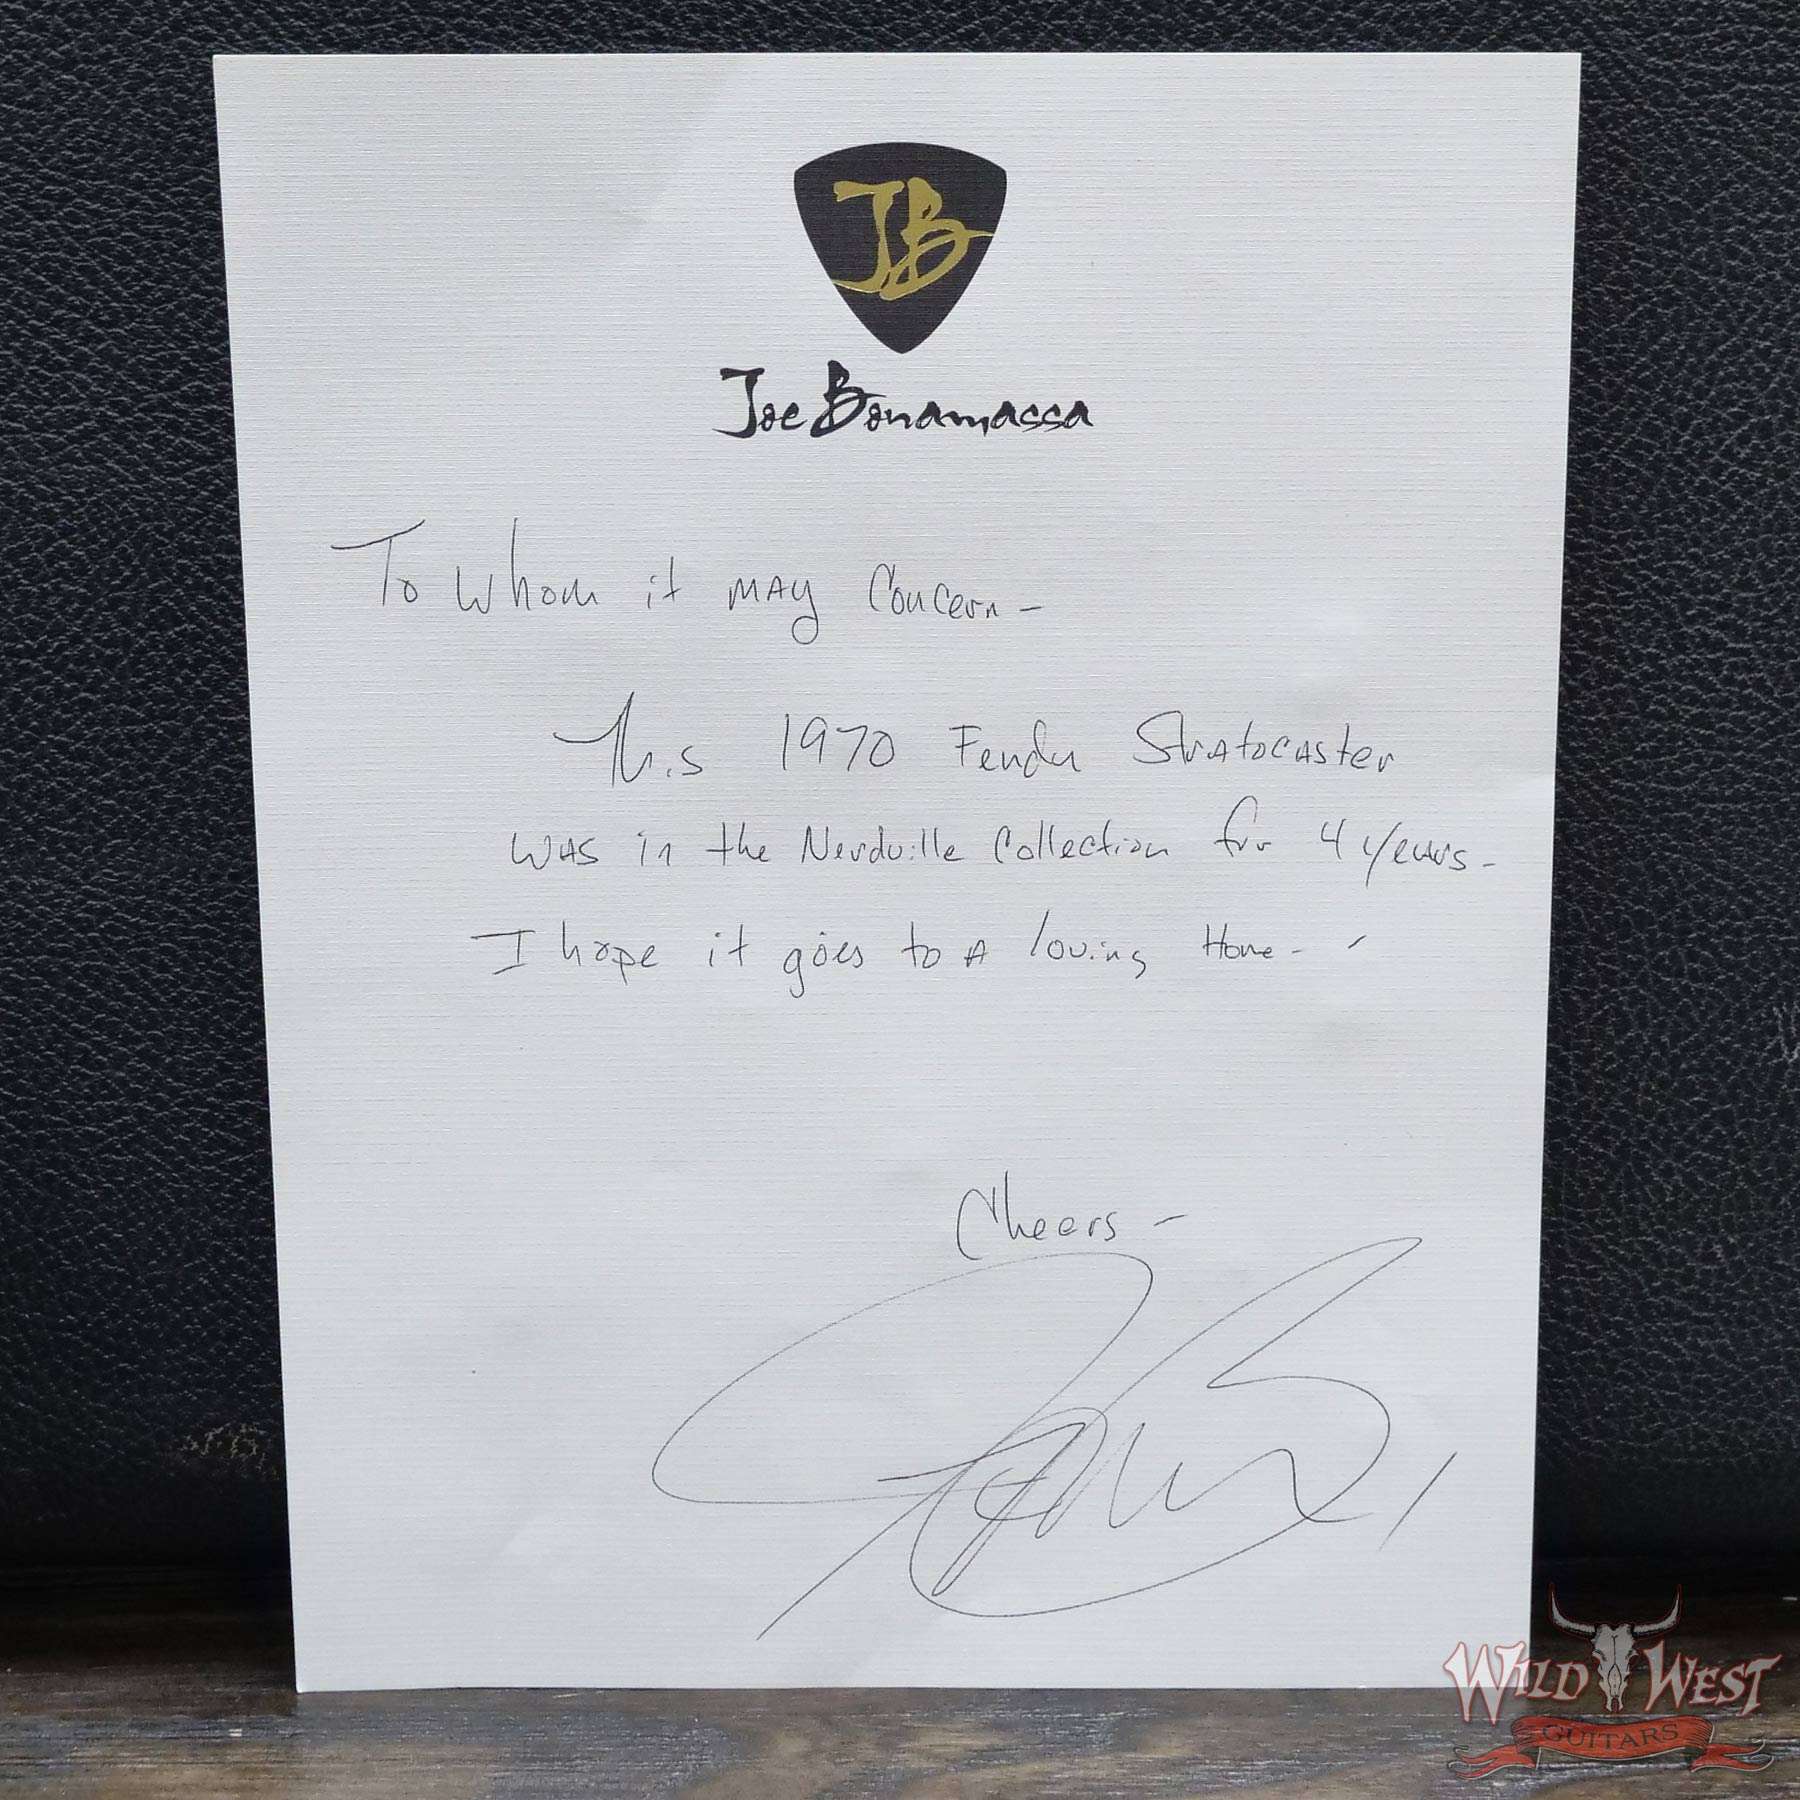 JB
Joe Bonamassa
To Whom it MAY Concern -
This 1970 Fender Stratocaster
WAS in the Nerdville Collection for 4 years -
I hope it goes to A loving Home - -
Cheers -
WILD WEST
GUITARS